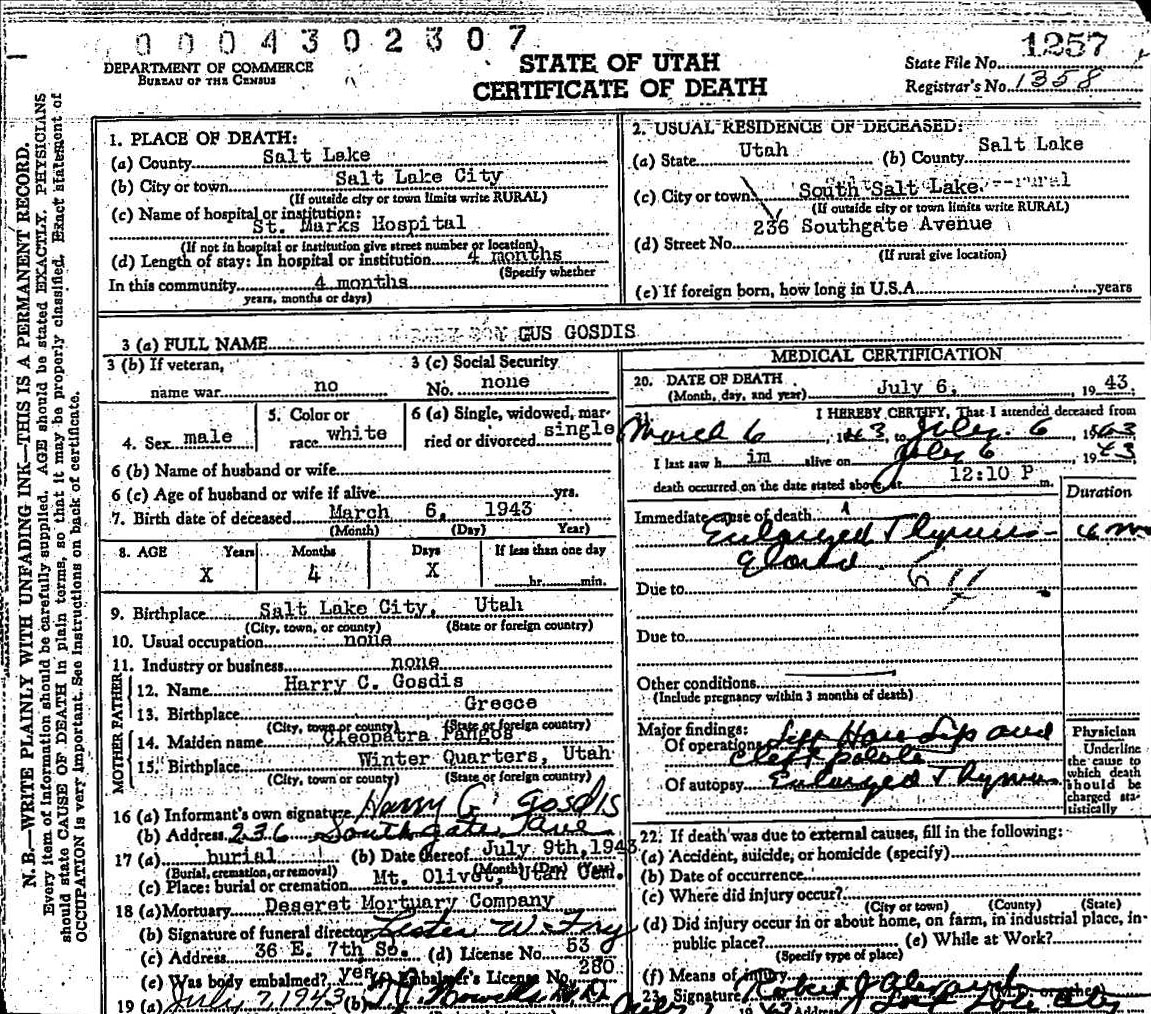 0004302307
1257
DEPARTMENT OF COMMERCE
BUREAU OF THE CENSUS
STATE OF UTAH
CERTIFICATE OF DEATH
State File No.
Registrar's No. 1358
N. B.—WRITE PLAINLY WITH UNFADING INK—THIS IS A PERMANENT RECORD.
Every item of information should be carefully supplied. AGE should be stated EXACTLY. PHYSICIANS
should state CAUSE OF DEATH in plain terms, so that it may be properly classified. Exact statement of
OCCUPATION is very important. See instructions on back of certificate.
1. PLACE OF DEATH:
(a) County Salt Lake
(b) City or town Salt Lake City
(If outside city or town limits write RURAL)
(c) Name of hospital or institution:
St. Marks Hospital
(If not in hospital or institution give street number or location)
(d) Length of stay: In hospital or institution 4 months
(Specify whether
In this community 4 months
years, months or days)
2. USUAL RESIDENCE OF DECEASED:
(a) State Utah (b) County Salt Lake
(c) City or town South Salt Lake --rural
(If outside city or town limits write RURAL)
236 Southgate Avenue
(d) Street No.
(If rural give location)
(e) If foreign born, how long in U.S.A. years
3 (a) FULL NAME GUS GOSDIS
3 (b) If veteran,
name war no
3 (c) Social Security
No. none
4. Sex male
5. Color or
race white
6 (a) Single, widowed, mar-
ried or divorced single
6 (b) Name of husband or wife
6 (c) Age of husband or wife if alive yrs.
7. Birth date of deceased March 6, 1943
(Month) (Day) Year)
8. AGE Years Months Days If less than one day
X 4 X hr. min.
9. Birthplace Salt Lake City, Utah
(City, town, or county) (State or foreign country)
10. Usual occupation none
11. Industry or business none
FATHER
12. Name Harry C. Gosdis
13. Birthplace Greece
(City, town or county) (State or foreign country)
MOTHER
14. Maiden name Cleopatra Pangos
15. Birthplace Winter Quarters, Utah
(City, town or county) (State or foreign country)
16 (a) Informant's own signature Harry G. Gosdis
(b) Address 236 Southgate Ave
17 (a) burial (b) Date thereof July 9th, 1943
(Burial, cremation, or removal) (Month) (Day) (Year)
(c) Place: burial or cremation Mt. Olivet, Utah Cem.
18 (a) Mortuary Deseret Mortuary Company
(b) Signature of funeral director Lester W Fry
(c) Address 36 E. 7th So. (d) License No. 53
(e) Was body embalmed? yes (f) Embalmer's License No. 280
19 (a) July 7, 1943 (b)
MEDICAL CERTIFICATION
20. DATE OF DEATH July 6, 1943.
(Month, day, and year)
21. I HEREBY CERTIFY, That I attended deceased from
March 6, 1943, to July 6, 1943
I last saw him alive on July 6 1943
death occurred on the date stated above, at 12:10 P m.
Duration
Immediate cause of death
Enlarged Thymus 4 m
Gland
Due to
Due to
Other conditions
(Include pregnancy within 3 months of death)
Major findings:
Of operations Left Hare Lip and
Cleft palate
Of autopsy Enlarged Thymus
Physician
Underline
the cause to
which death
should be
charged sta-
tistically
22. If death was due to external causes, fill in the following:
(a) Accident, suicide, or homicide (specify)
(b) Date of occurrence
(c) Where did injury occur?
(City or town) (County) (State)
(d) Did injury occur in or about home, on farm, in industrial place, in-
public place? (e) While at Work?
(Specify type of place)
(f) Means of injury
23. Signature Robert J Alexander
Address Salt Lake City